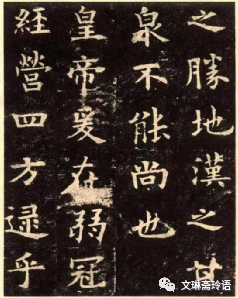 之勝地漢之甘
泉不能尚也
皇帝爰在弱冠
經營四方逯乎
文琳斋玲语